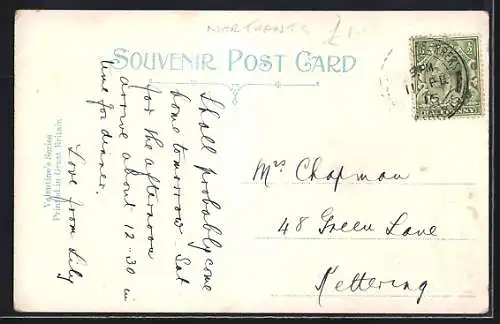 NORTHANTS £1
SOUVENIR POST CARD
Shall probably come
home tomorrow - Sat
for the afternoon
arrive about 12-30 in
time for dinner.
Love from Lily
Valentine's Series
Printed in Great Britain
Mrs Chapman
48 Green Lane
Kettering